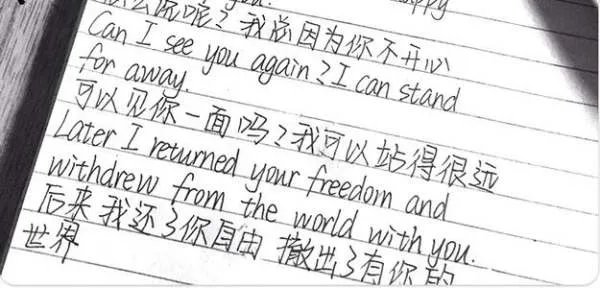 么说呢？我总因为你不开心
Can I see you again? I can stand
for away.
可以见你一面吗？我可以站得很远
Later I returned your freedom and
withdrew from the world with you.
后来我还了你自由 撤出了有你的
世界